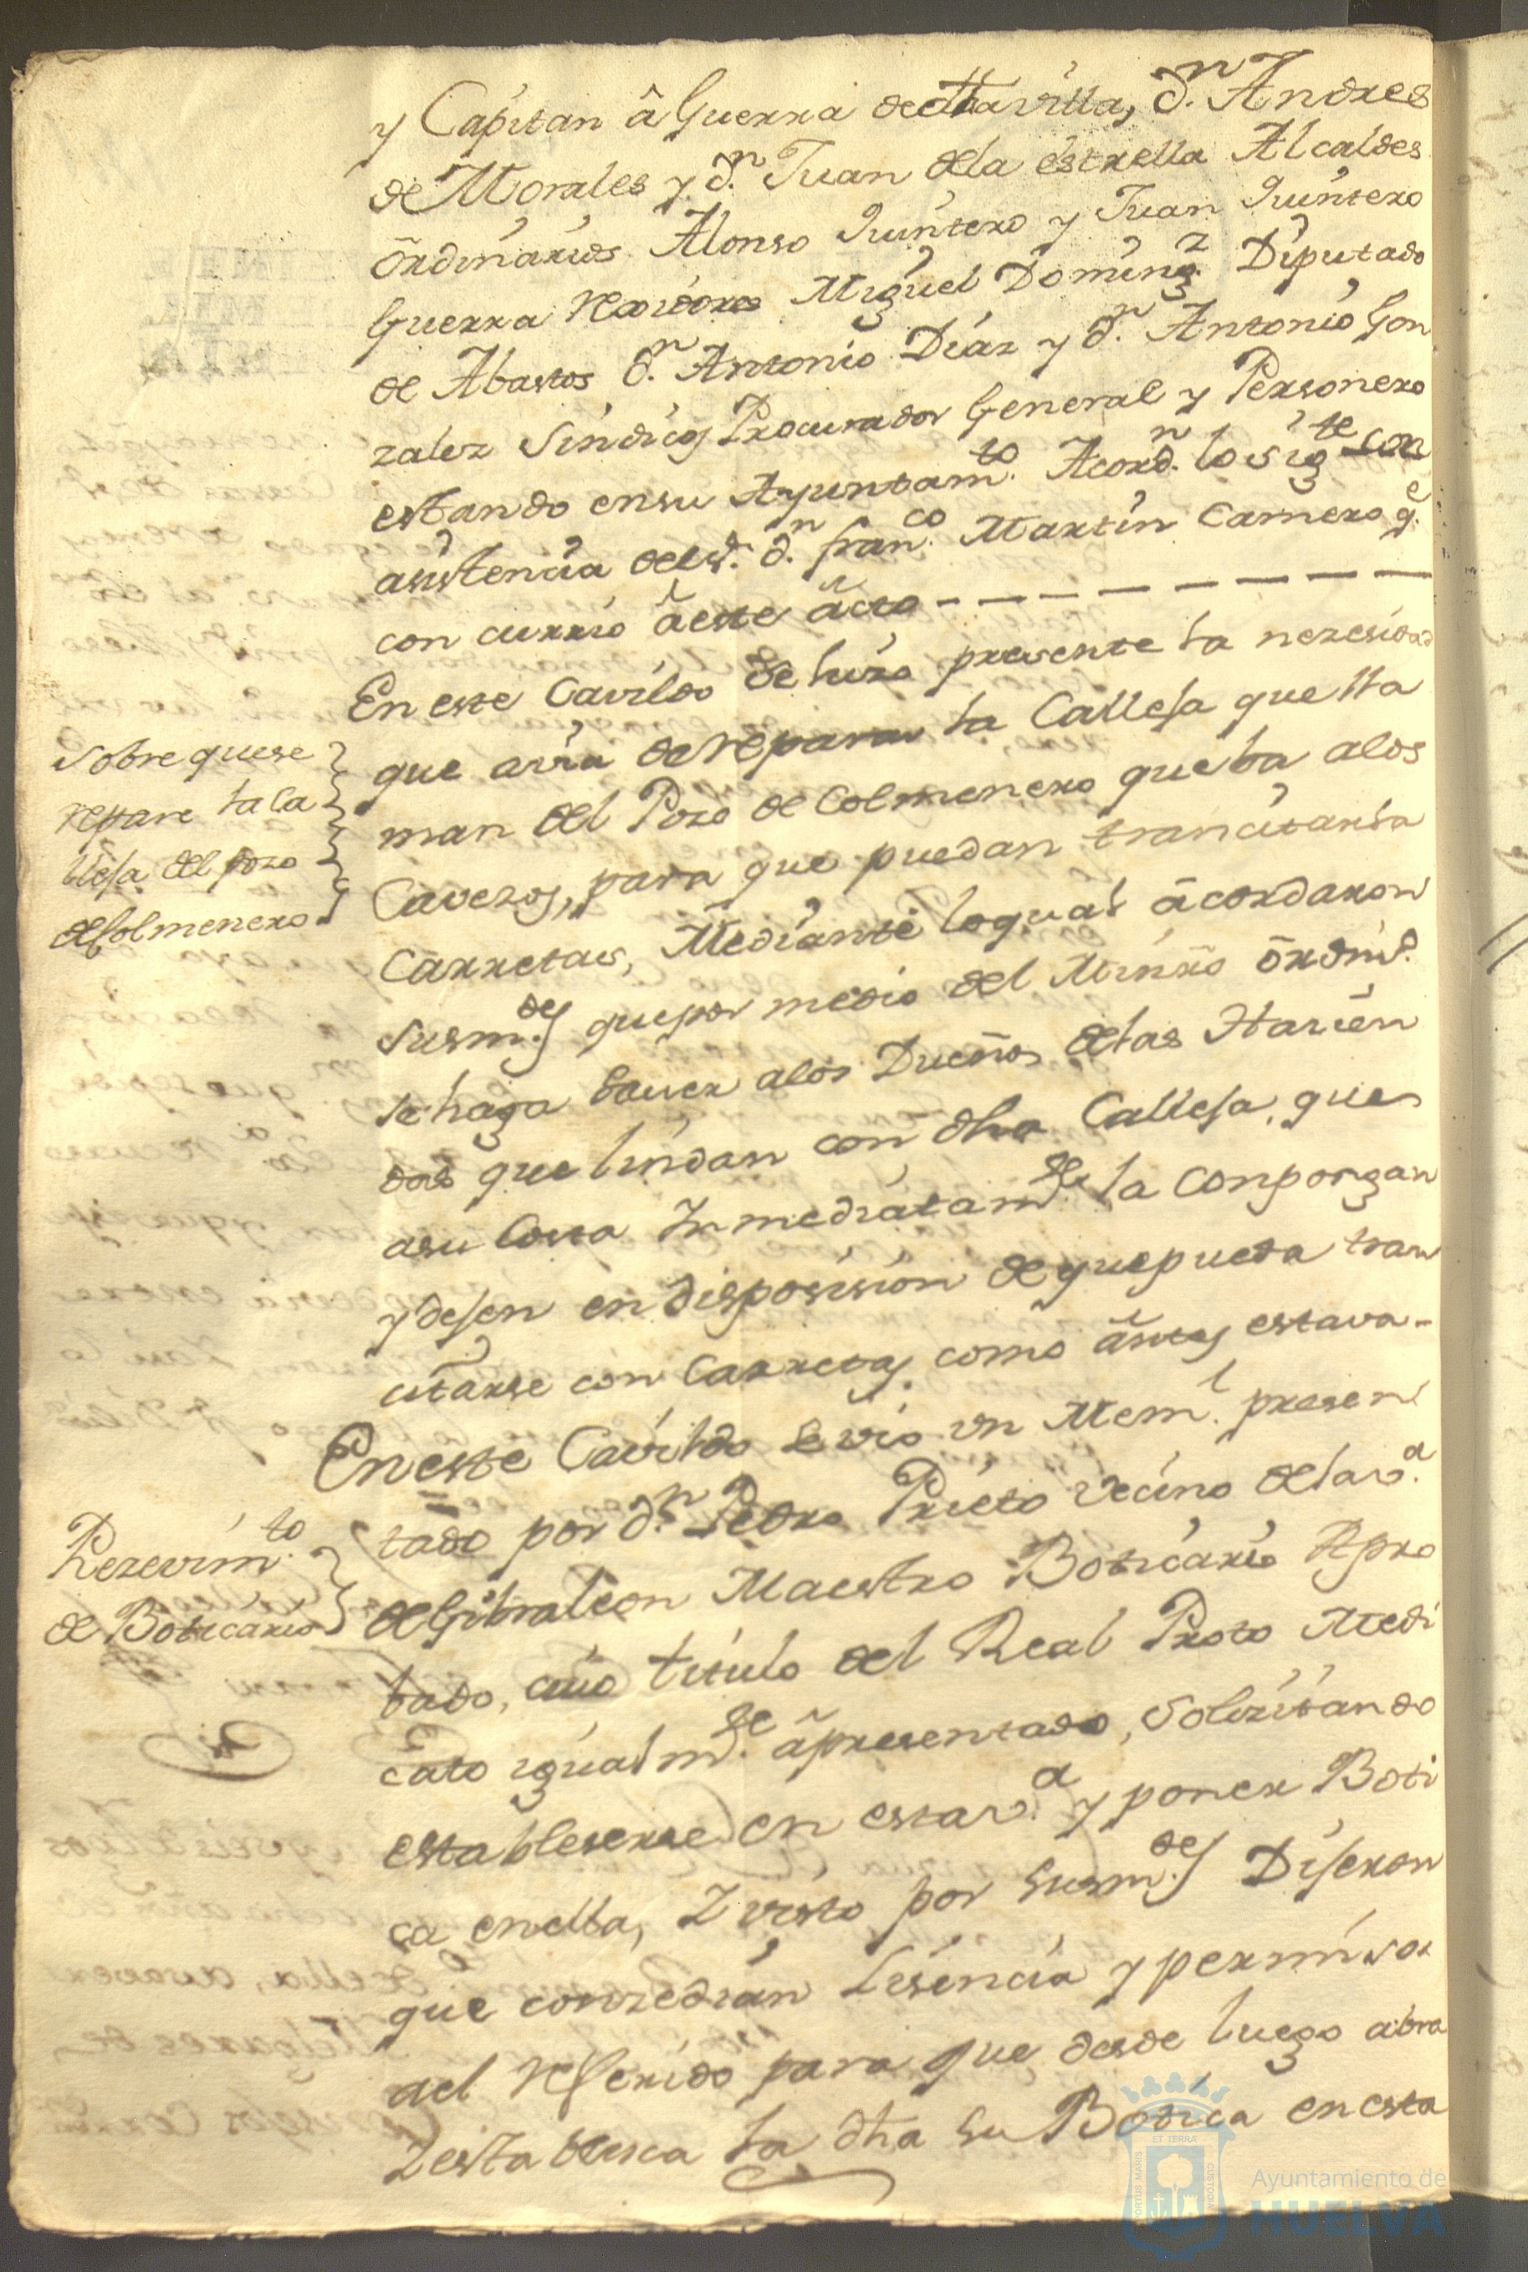 y Capitan â Guerra de esta villa, d.n Andres
de Morales y d.n Juan dela estrella Alcaldes
õrdinarios Alonso Quintero y Juan Quintero
Guerra rexidores Miguel Doming.z Diputado
de Abastos d.n Antonio Diaz y d.n Antonio Gon
zalez Sindicos Procurador General y Personero
estando ensu Ayuntam.to Acord.n lo sig.te con
asistencia del s.r d.n fran.co Martin Camero q.e
con currio ã este ãcto
En este Cavildo se hizo presente la nezesidad
que avia de reparar la Calleja que lla
man del Pozo de Colmenero que ba alos
Cavezos, para que puedan trancitarla
Carretas, Mediante loqual ãcordaron
susm.des que por medio del Minrõ õrdin.o
se haga saver alos Dueños delas Hazien
das que lindan con dha Calleja, que
asu Costa Inmediatam.te la Conpongan
y dejen en disposision de que pueda tran
citarse con Carretas como ãntes estava-
En este Cavildo se vio vn Mem.l presen
tado por d.n Pedro Prieto vecino dela v.a
de Gibraleon Maestro Boticario Apro
bado, cuio titulo del Real Proto Medi
cato igualm.te ãpresentado, Solizitando
estableserse en esta v.a y poner Boti
ca enella, Y visto por susm.des Dijeron
que conzedian Lisencia y permiso
ael referido para que desde luego abra
Y establesca la dha su Botica en esta
Sobre quese
repare la Ca
lleja del pozo
de Colmenero
Rezevim.to
de Boticario
PORTUS MARIS ET TERRÆ CUSTODIA
Ayuntamiento de
HUELVA